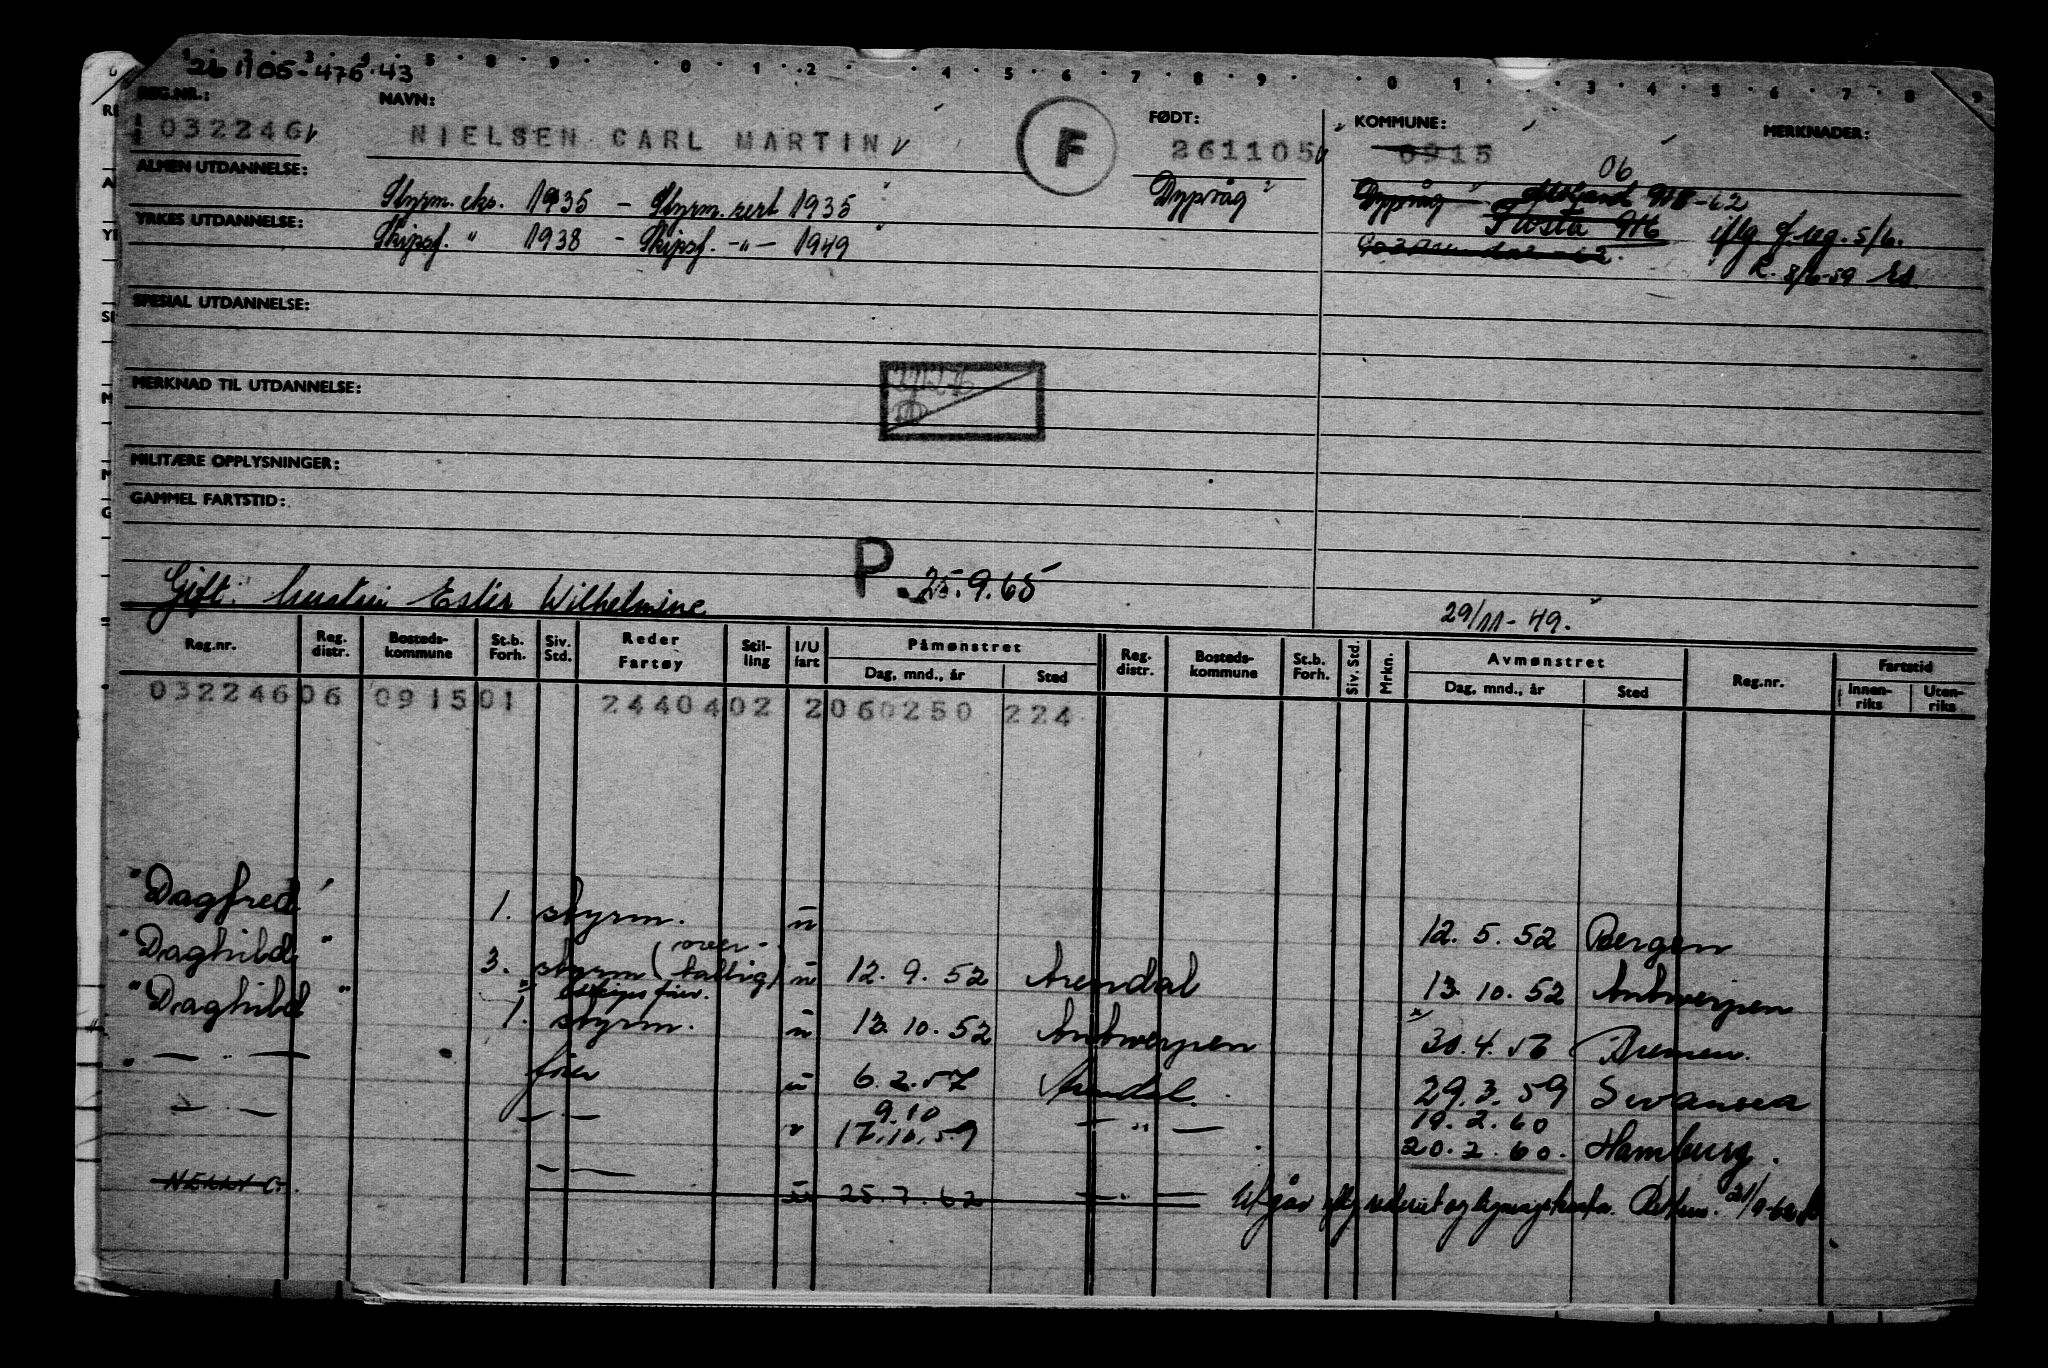 26 11 05 - 475 43
REG.NR.: NAVN: FØDT: KOMMUNE: MERKNADER:
032246 NIELSEN CARL MARTIN F 261105 0915
06
ALMEN UTDANNELSE:
Styrm. eks. 1935 - Styrm. sert 1935 Dypvåg Dypvåg 918-62
YRKES UTDANNELSE:
Skipsf. " 1938 - Skipsf. -"- 1949 Flosta 916 iflg f.reg. 5/6.
R. 8/6-59
SPESIAL UTDANNELSE:
MERKNAD TIL UTDANNELSE:
MILITÆRE OPPLYSNINGER:
GAMMEL FARTSTID:
Gift: hustru Ester Wilhelmine P. 25.9.65
29/11-49.
Reg.nr. Reg. distr. Bosteds-kommune St.b. Forh. Siv. Std. Reder Fartøy Stil-ling I/U fart Påmønstret Reg. distr. Bosteds-kommune St.b. Forh. Siv. Std. Mrkn. Avmønstret Reg.nr. Fartstid
Dag, mnd., år Sted Dag, mnd., år Sted Innen-riks Uten-riks
032246 06 0915 01 24404 02 2 060250 224
"Dagfred" 1. styrm. u 12. 5. 52 Bergen
"Daghild" 3. styrm (over-tallig) u 12. 9. 52 Arendal 13. 10. 52 Antwerpen
"Daghild" 1. styrm. u 13. 10. 52 Antwerpen 30. 4. 56 Bremen.
" — " — fører u 6. 2. 57 Arendal. 29. 3. 59 Swansea
9.10 19. 2. 60
— " — — " — u 17. 10. 59 — " — 20. 2. 60. Hamburg.
— " — u 25. 7. 62 — " — Utgår iflg rederiet og